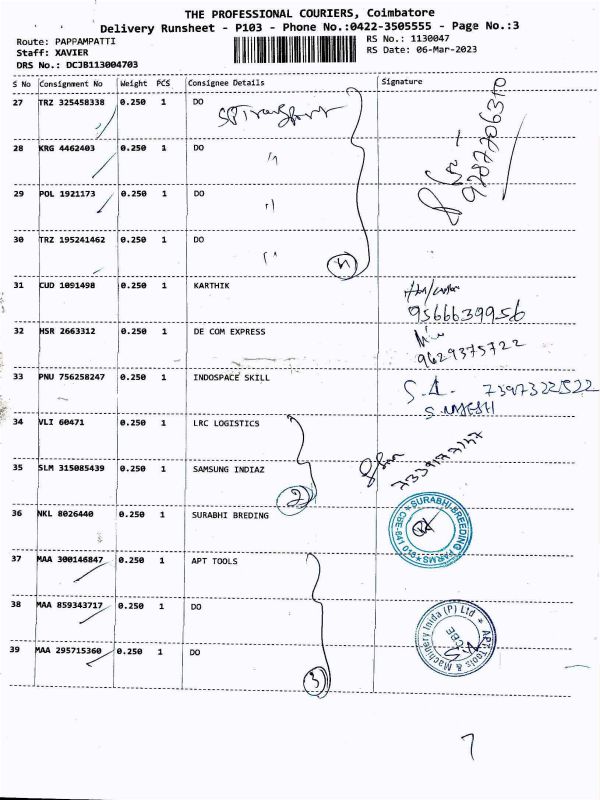 THE PROFESSIONAL COURIERS, Coimbatore
Delivery Runsheet - P103 - Phone No.:0422-3505555 - Page No.:3
Route: PAPPAMPATTI
RS No.: 1130047
Staff: XAVIER
RS Date: 06-Mar-2023
DRS No.: DCJB113004703
S No Consignment No Weight PCS Consignee Details Signature
27 TRZ 325458338 0.250 1 DO
28 KRG 4462403 0.250 1 DO
29 POL 1921173 0.250 1 DO
30 TRZ 195241462 0.250 1 DO
4
31 CUD 1091498 0.250 1 KARTHIK
9566639956
32 HSR 2663312 0.250 1 DE COM EXPRESS
9629375722
33 PNU 756258247 0.250 1 INDOSPACE SKILL
34 VLI 60471 0.250 1 LRC LOGISTICS
35 SLM 315085439 0.250 1 SAMSUNG INDIAZ
2
36 NKL 8026440 0.250 1 SURABHI BREDING
SURABHI BREEDING FARMS
37 MAA 300146847 0.250 1 APT TOOLS
38 MAA 859343717 0.250 1 DO
APT Tools & Machinery India (P) Ltd
CBE
39 MAA 295715360 0.250 1 DO
3
7